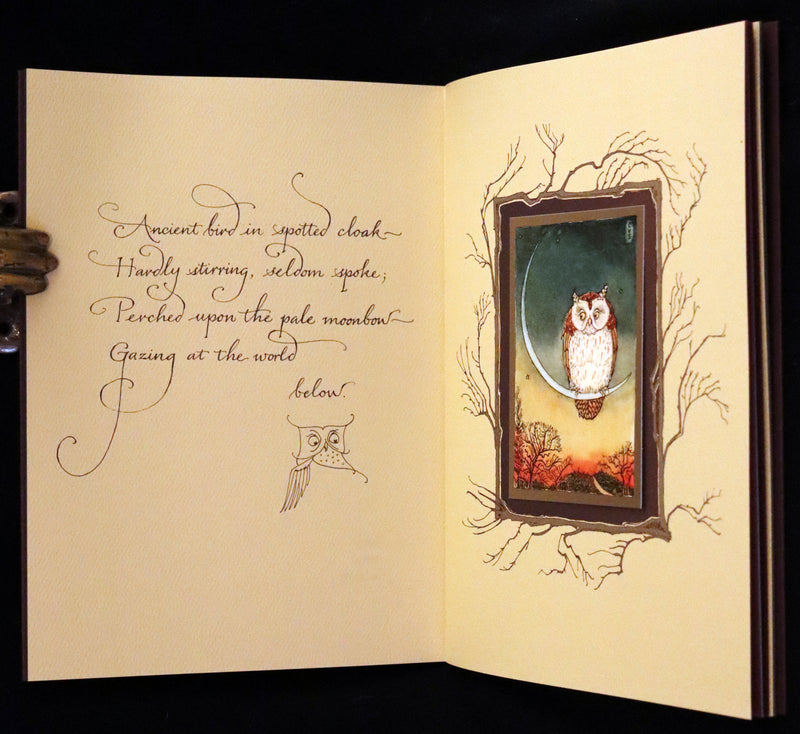 Ancient bird in spotted cloak
Hardly stirring, seldom spoke;
Perched upon the pale moonbow
Gazing at the world
below.